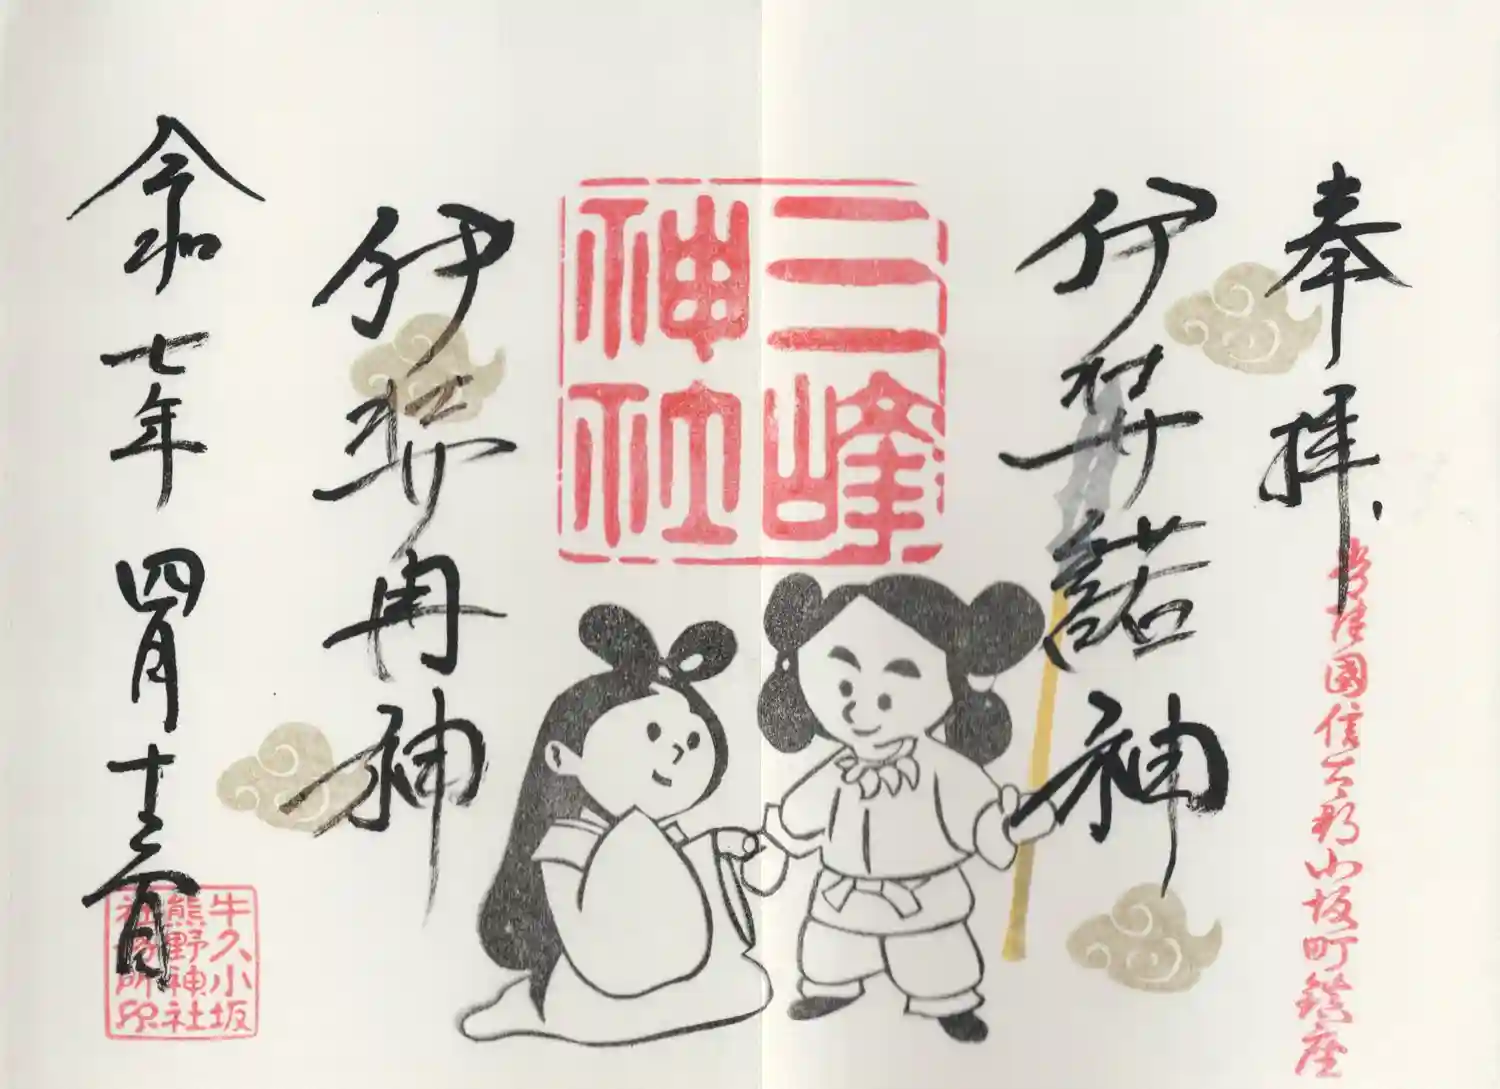 奉拝
常陸國信太郡小坂町鎮座
伊弉諾神
三峰
神社
伊弉冉神
令和七年四月十
牛久小坂
熊野神社
社務所印